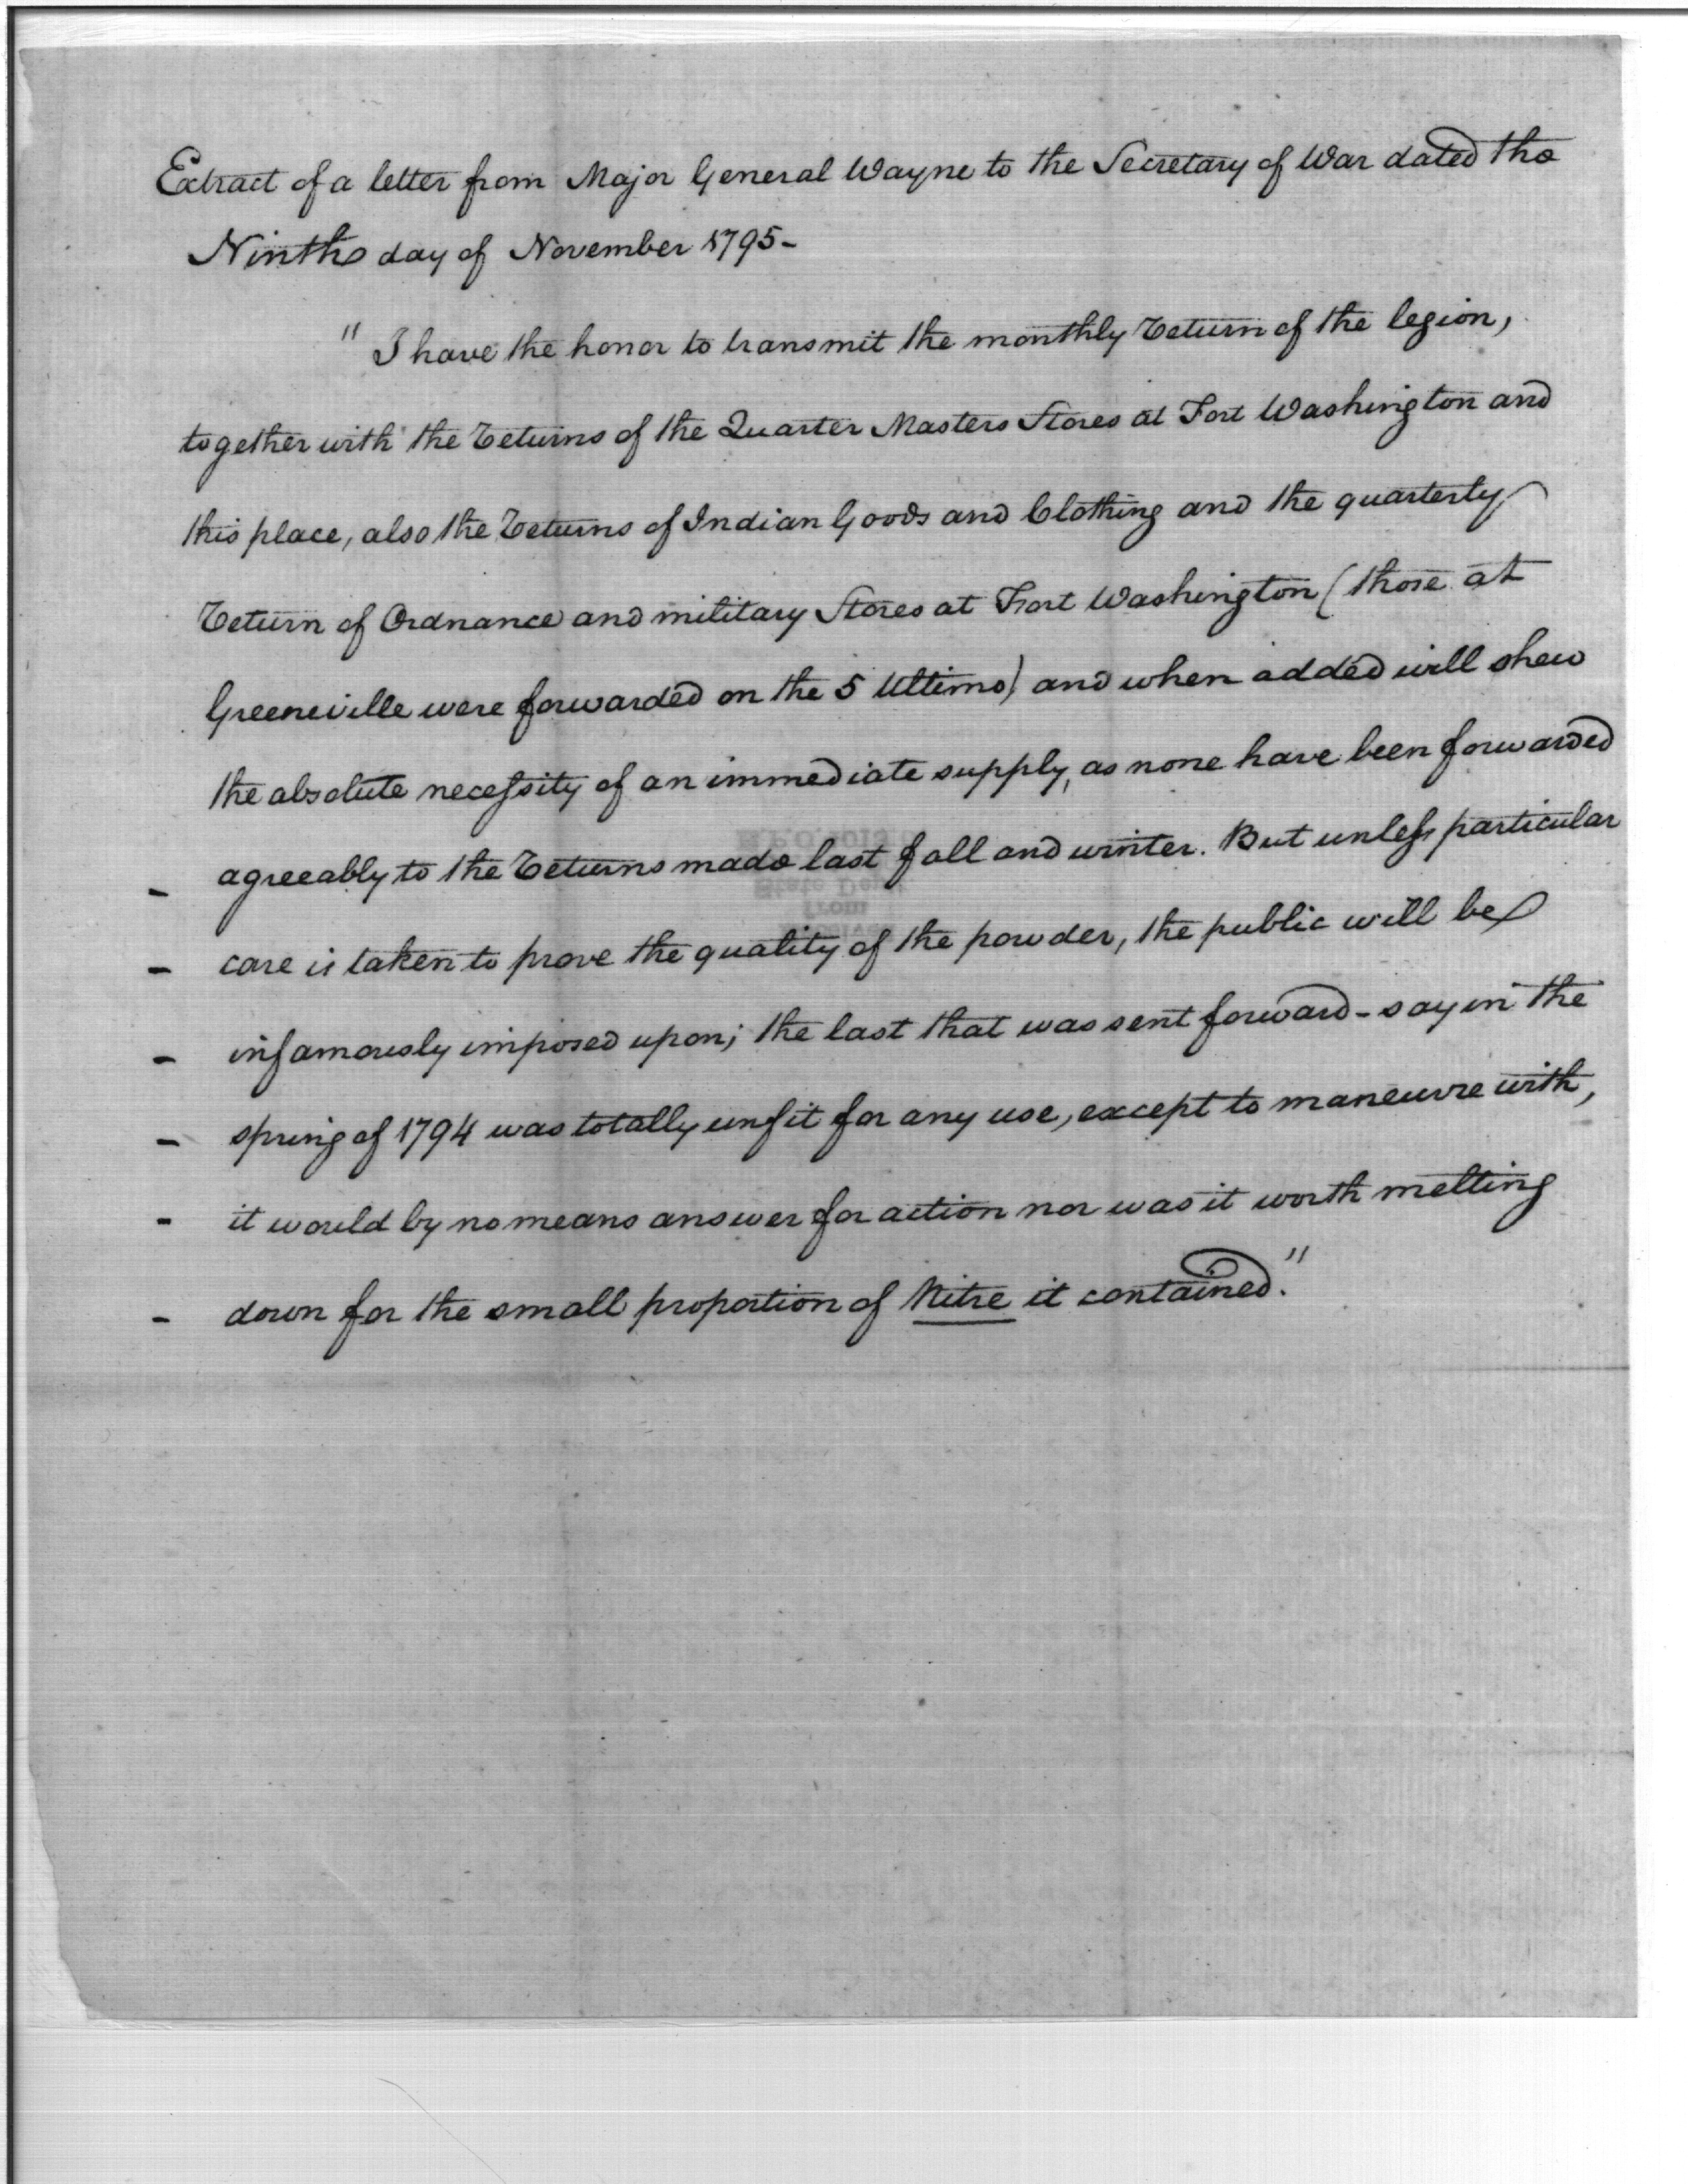 Extract of a letter from Major General Wayne to the Secretary of War dated the
Ninth day of November 1795-
"I have the honor to transmit the monthly Return of the legion,
together with the Returns of the Quarter Masters Stores at Fort Washington and
this place, also the Returns of Indian Goods and Clothing and the quarterly
Return of Ordnance and military Stores at Fort Washington (those at
Greeneville were forwarded on the 5 Ultimo) and when added will shew
the absolute necessity of an immediate supply, as none have been forwarded
- agreeably to the Returns made last fall and winter. But unless particular
- care is taken to prove the quality of the powder, the public will be
- infamously imposed upon; the last that was sent forward - say in the
- spring of 1794 was totally unfit for any use, except to maneuvre with,
- it would by no means answer for action nor was it worth melting
- down for the small proportion of Nitre it contained."
State Dept
from